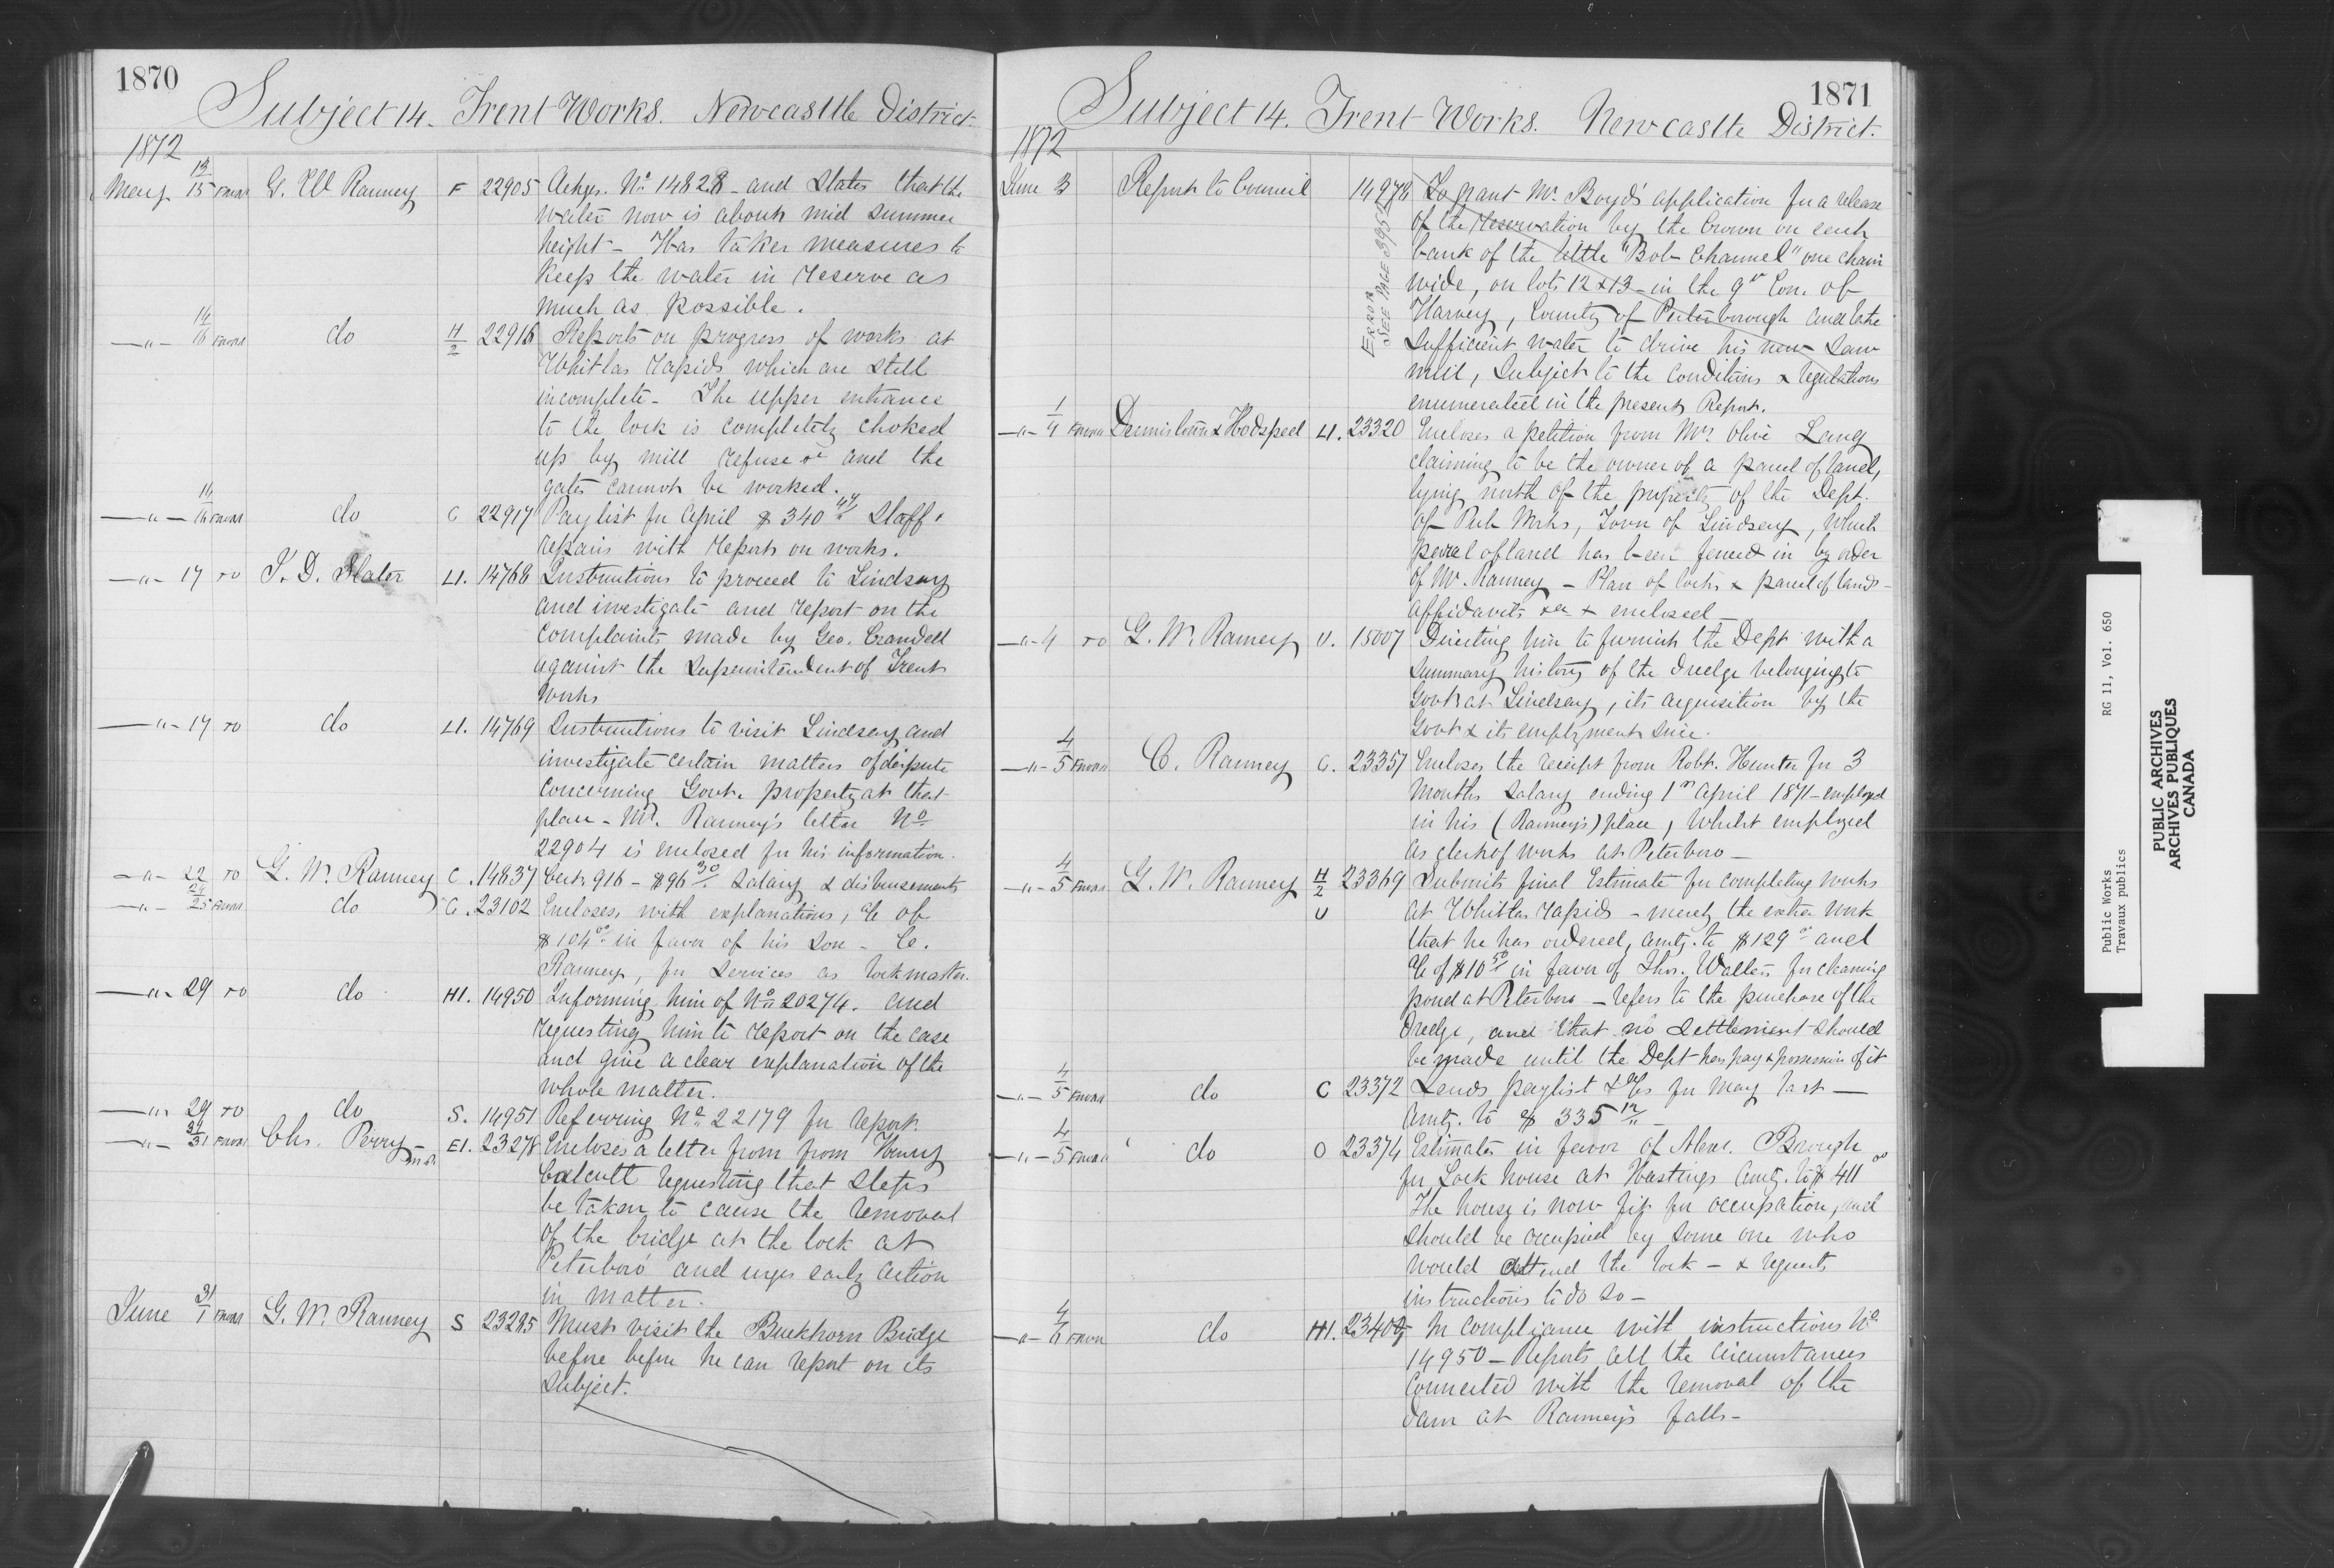 1870
Subject 14. Trent Works. Newcastle District.
1872
May 13/15 G. W Ranney F 22905 Ackgs. No 14828 - and States that the
water now is about mid summer
height - Has taken measures to
keep the water in reserve as
much as possible.
— " — 14/16 do H/2 22916 Reports on progress of works at
Whitlas rapids which are still
incomplete - The upper entrance
to the lock is completely choked
up by mill refuse &c and the
gates cannot be worked.
— " — 14/16 do C 22917 Pay list for April $ 340 44 Staff &
repairs with report on works.
— " — 17 TO T. D. Slater L1. 14768 Instructions to proceed to Lindsay
and investigate and report on the
complaints made by Geo. Crandell
against the Superintendent of Trent
Works
— " — 17 TO do L1. 14769 Instructions to visit Lindsay and
investigate certain matters of dispute
concerning Govt. property at that
place - Mr. Ranney's letter No
22904 is enclosed for his information.
— " — 22 TO G. W. Ranney C. 14837 Cert. 916 - $96 30 Salary & disbursements
— " — 24/25 do C. 23102 Encloses, with explanations, a/c of
$104 00 in favor of his son - C.
Ranney, for services as lockmaster.
— " — 29 TO do H1. 14950 Informing him of No 20274. and
requesting him to report on the case
and give a clear explanation of the
whole matter.
— " — 29 TO do S. 14951 Referring No 22179 for report.
— " — 31 Chs. Perry - M.P. E1. 23278 Encloses a letter from from Henry
Calcutt requesting that steps
be taken to cause the removal
of the bridge at the lock at
Peterboro' and urges early action
in matter.
June 31/1 G. W. Ranney S 23285 Must visit the Buckhorn Bridge
before before he can report on its
subject.
1871
Subject 14. Trent Works. Newcastle District.
1872
June 3 Report to Council 14978 To grant Mr. Boyd's application for a release
of the reservation by the Crown on each
bank of the little "Bob Channel" one chain
wide, on lots 12 & 13 - in the 9th Con. of
Harvey, County of Peterborough and take
sufficient water to drive his new saw
mill, Subject to the conditions & regulations
enumerated in the present Report.
ERROR
SEE PAGE 3952
— " — 1/4 Dennistoun & Hodspeed L1. 23320 Encloses a petition from Mrs Olive Lang
claiming to be the owner of a parcel of land,
lying north of the property of the Dept.
of Pub Works, Town of Lindsay, which
parcel of land has been fenced in by order
of Mr. Ranney - Plan of locks & parcel of land -
affidavits &c & enclosed
— " — 4 TO G. W. Ranney U. 15007 Directing him to furnish the Dept with a
summary history of the dredge belonging to
Govt at Lindsay, its acquisition by the
Govt & its employment since.
— " — 4/5 C. Ranney C. 23357 Encloses the receipt from Robt. Hunter for 3
months salary ending 1st April 1871 - employed
in his (Ranney's) place, whilst employed
as clerk of works at Peterboro —
— " — 4/5 G. W. Ranney H/2 23369 Submits final Estimate for completing works
U at Whitlas rapids - merely the extra work
that he has ordered, amtg. to $129 00 and
a/c of $10 50 in favor of Thos. Walters for cleaning
pond at Peterboro - refers to the purchase of the
dredge, and that no settlement should
be made until the Dept has pay & possession of it
— " — 4/5 do C 23372 Sends paylist & a/cs for May last —
amtg. to $ 335 12 —
— " — 4/5 do O 23374 Estimates in favor of Alexr. Brough
for Lock house at Hastings amtg. to $ 411 00
The house is now fit for occupation, and
should be occupied by some one who
would attend the lock - & requests
instructions to do so —
— " — 4/6 do H1. 23409 In compliance with instructions No
14950 - Reports all the circumstances
connected with the removal of the
dam at Ranney's falls -
Public Works RG 11, Vol. 650
Travaux publics
PUBLIC ARCHIVES
ARCHIVES PUBLIQUES
CANADA